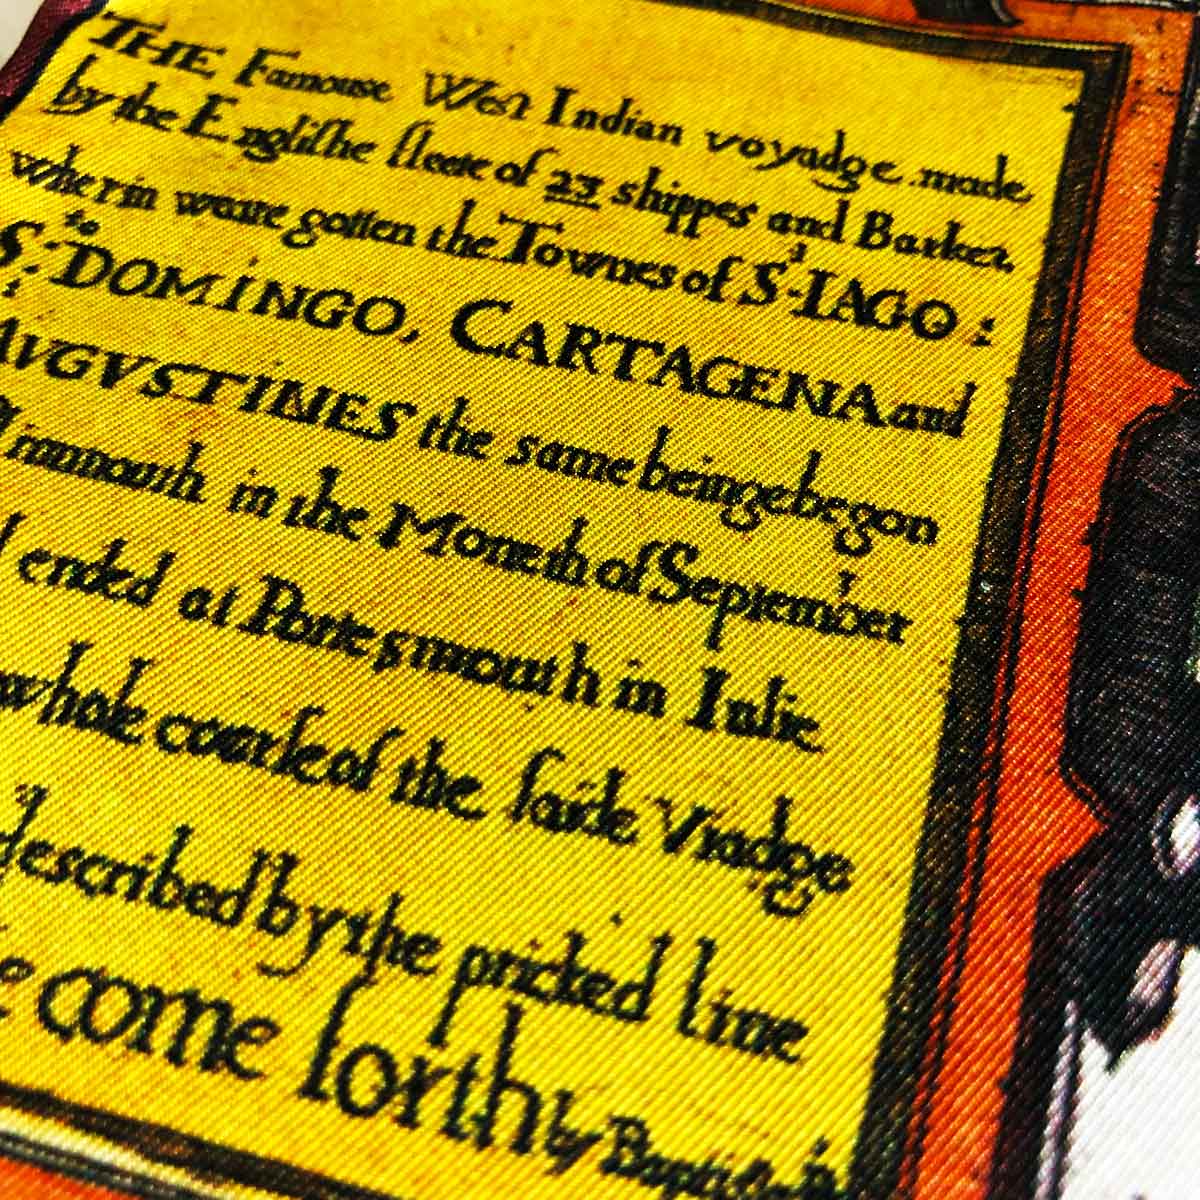 THE Famouse West Indian voyadge made
by the Englishe fleete of 23 shippes and Barkes
wherin weare gotten the Townes of S.t IAGO :
S.to: DOMINGO, CARTAGENA and
AVGVSTINES the same beinge begon
in the Moneth of September
ended at Portesmouth in Iulie
whole course of the saide Viadge
described by the pricked line
come forth by Baptista B